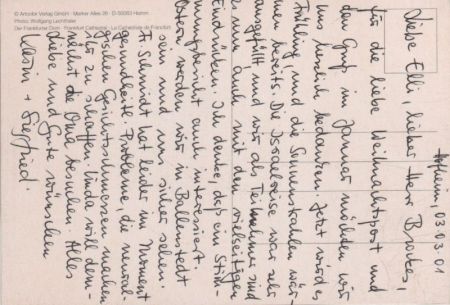 © Amador Verlag GmbH · Marker Allee 26 · D-59063 Hamm
Photo: Wolfgang Lechthaler
Der Frankfurter Dom · Frankfurt Cathedral · La Cathédrale de Francfort
Hofheim, 03.03.01
Liebe Elli, lieber Herr Brockes,
für die liebe Weihnachtspost und
den Gruß im Januar möchten wir
uns herzlich bedanken. Jetzt wird es
Frühling und die Sonnenstrahlen wär-
men bereits. Die Israelreise war sehr
ausgefüllt und wir als Teilnehmer sind
es nun auch mit den vielseitigen
Eindrücken. Ich denke, daß ein Stim-
mungsbericht auch interessiert.
Ostern werden wir in Ballenstedt
sein und uns sicher sehen.
Fr. Schmidt hat leider im Moment
gesundheitl. Probleme, die neural-
gischen Gesichtsschmerzen machen
ihr zu schaffen. Linda will dem-
nächst die Oma besuchen. Alles
Liebe und Gute wünschen
Karin + Siegfried